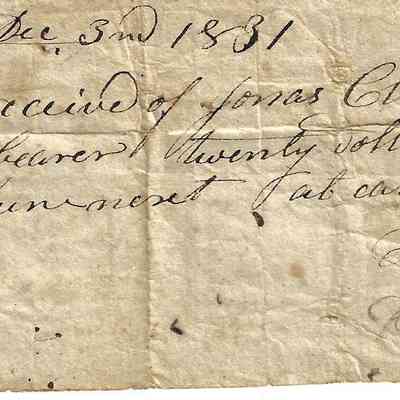 Dec 3nd 1831
eceive of Jonas Cl
bearer twenty doll
une next at ca